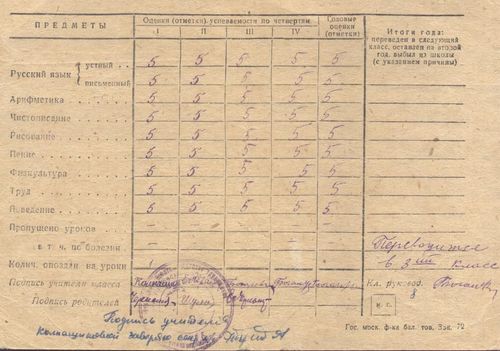 ПРЕДМЕТЫ
Оценки (отметки) успеваемости по четвертям
I II III IV
Годовые оценки (отметки)
Итоги года: переведен в следующий класс, оставлен на второй год, выбыл из школы (с указанием причины)
Русский язык
устный 5 5 5 5 5
письменный 5 5 5 5 5
Арифметика 5 5 5 5 5
Чистописание 5 5 5 5 5
Рисование 5 5 5 5 5
Пение 5 5 5 5 5
Физкультура 5 5 5 5 5
Труд 5 5 5 5 5
Поведение 5 5 5 5 5
Пропущено уроков –
в т. ч. по болезни –
Колич. опозданий на уроки –
Переводится
в 3ий класс
Подпись учителя класса
Кл. руковод.
Подпись родителей
М. П.
Подпись учителя
заверяю
Гос. моск. ф-ка бел. тов. Зак. 72